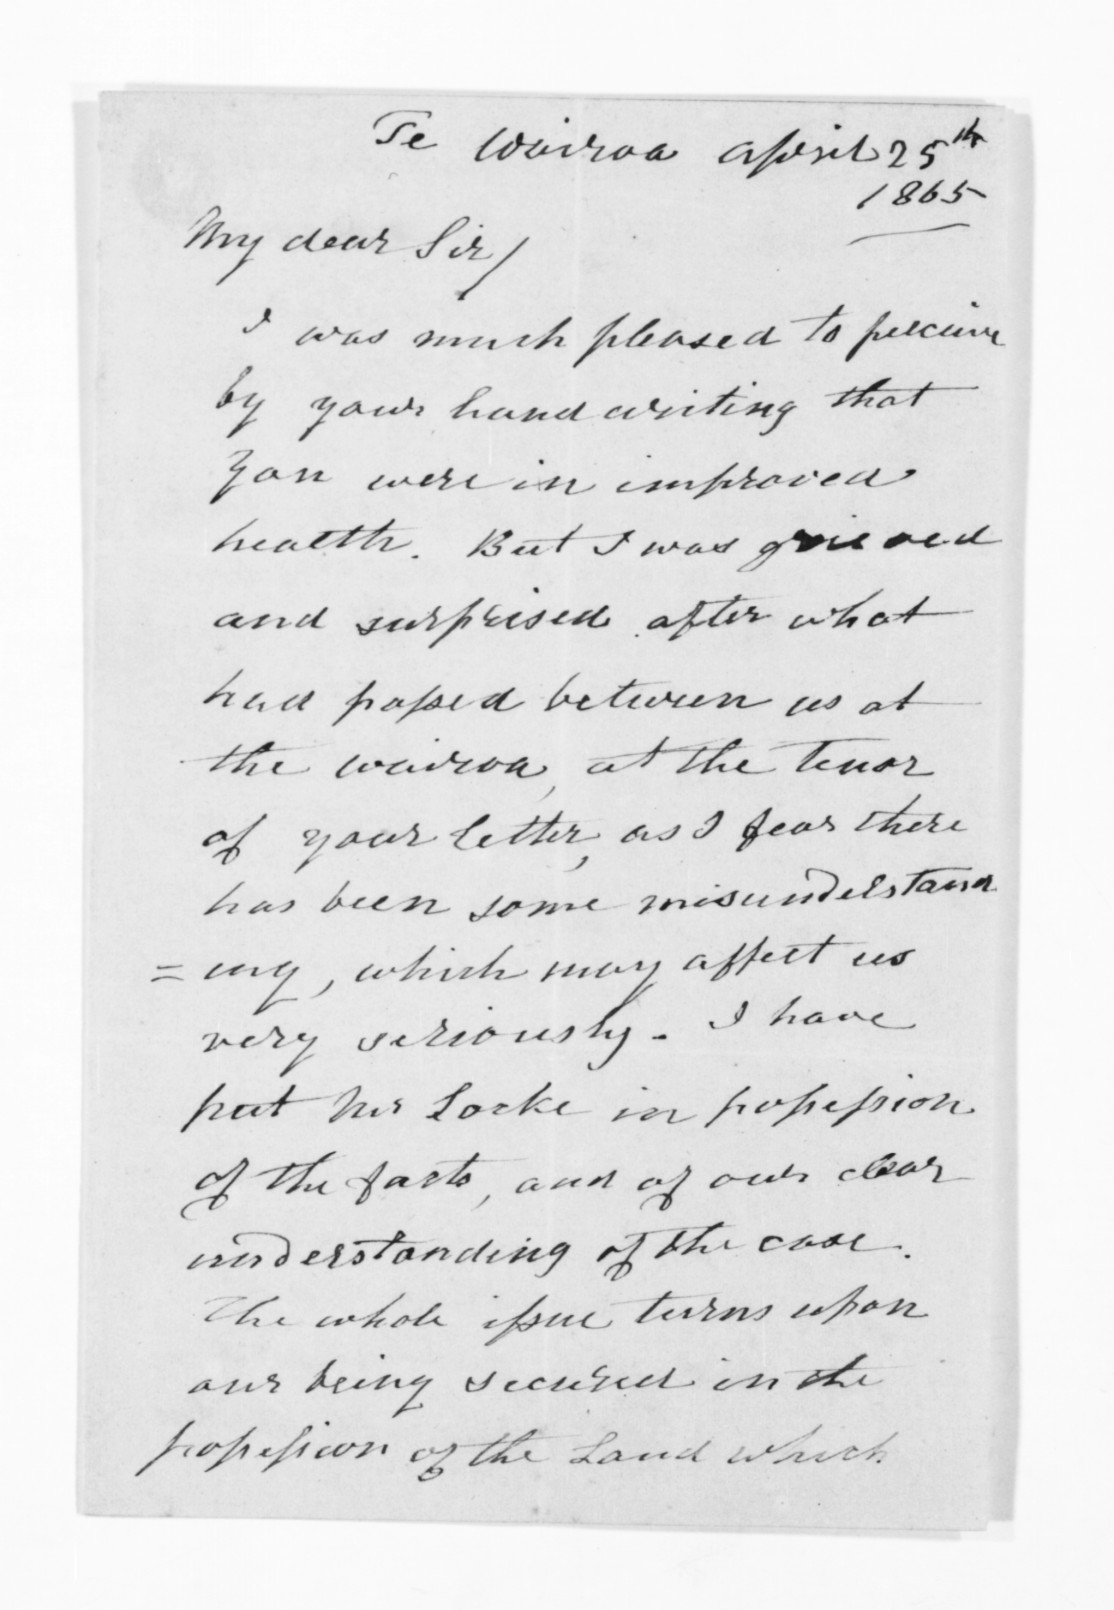 Te Wairoa April 25th
1865
My dear Sir/
I was much pleased to perceive
by your hand writing that
you were in improved
health. But I was grieved
and surprised after what
had passed between us at
the Wairoa, at the tenor
of your letter, as I fear there
has been some misunderstand
=ing, which may affect us
very seriously. I have
put Mr Locke in possession
of the facts, and of our clear
understanding of the case.
The whole issue turns upon
our being secured in the
possession of the Land which